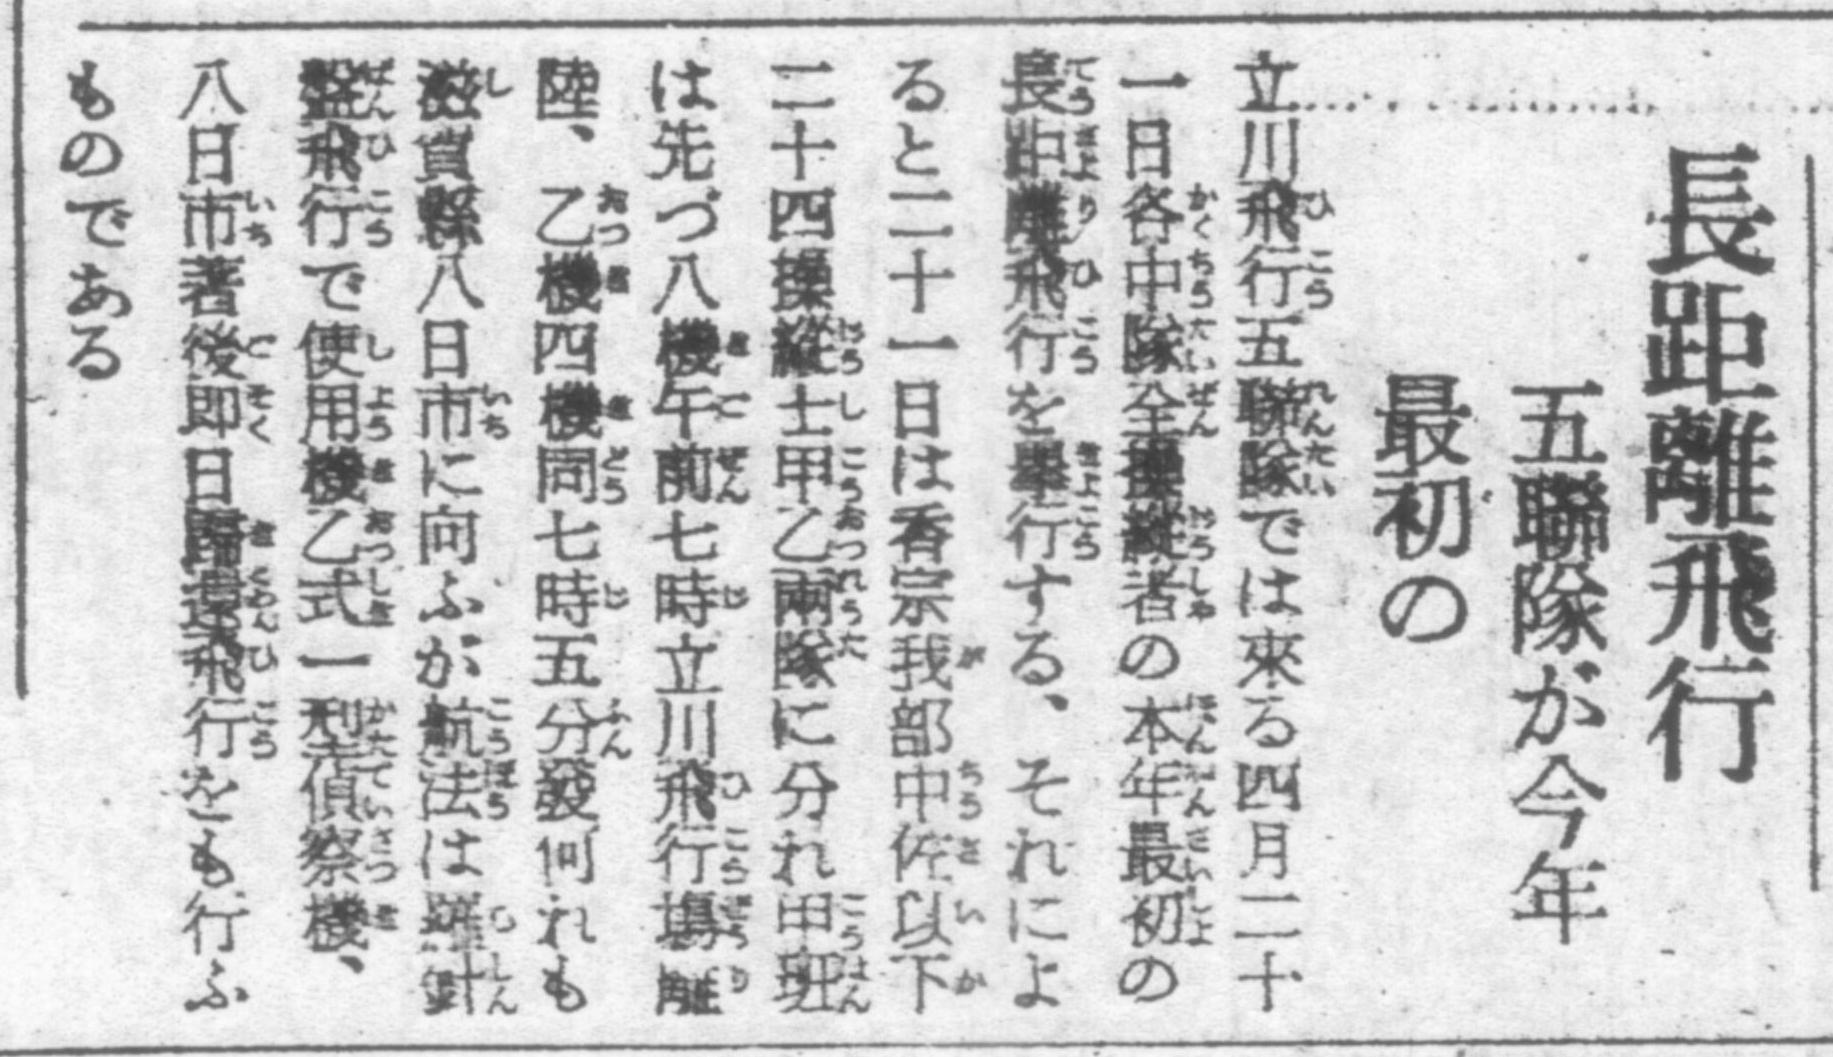 長距離飛行
五聯隊が今年
最初の
立川飛行五聯隊では來る四月二十
一日各中隊全操縱者の本年最初の
長距離飛行を擧行する、それによ
ると二十一日は香宗我部中佐以下
二十四操縱士甲乙兩隊に分れ甲班
は先づ八機午前七時立川飛行場離
陸、乙機四機同七時五分發何れも
滋賀縣八日市に向ふが航法は羅針
盤飛行で使用機乙式一型偵察機、
八日市著後即日歸還飛行をも行ふ
ものである